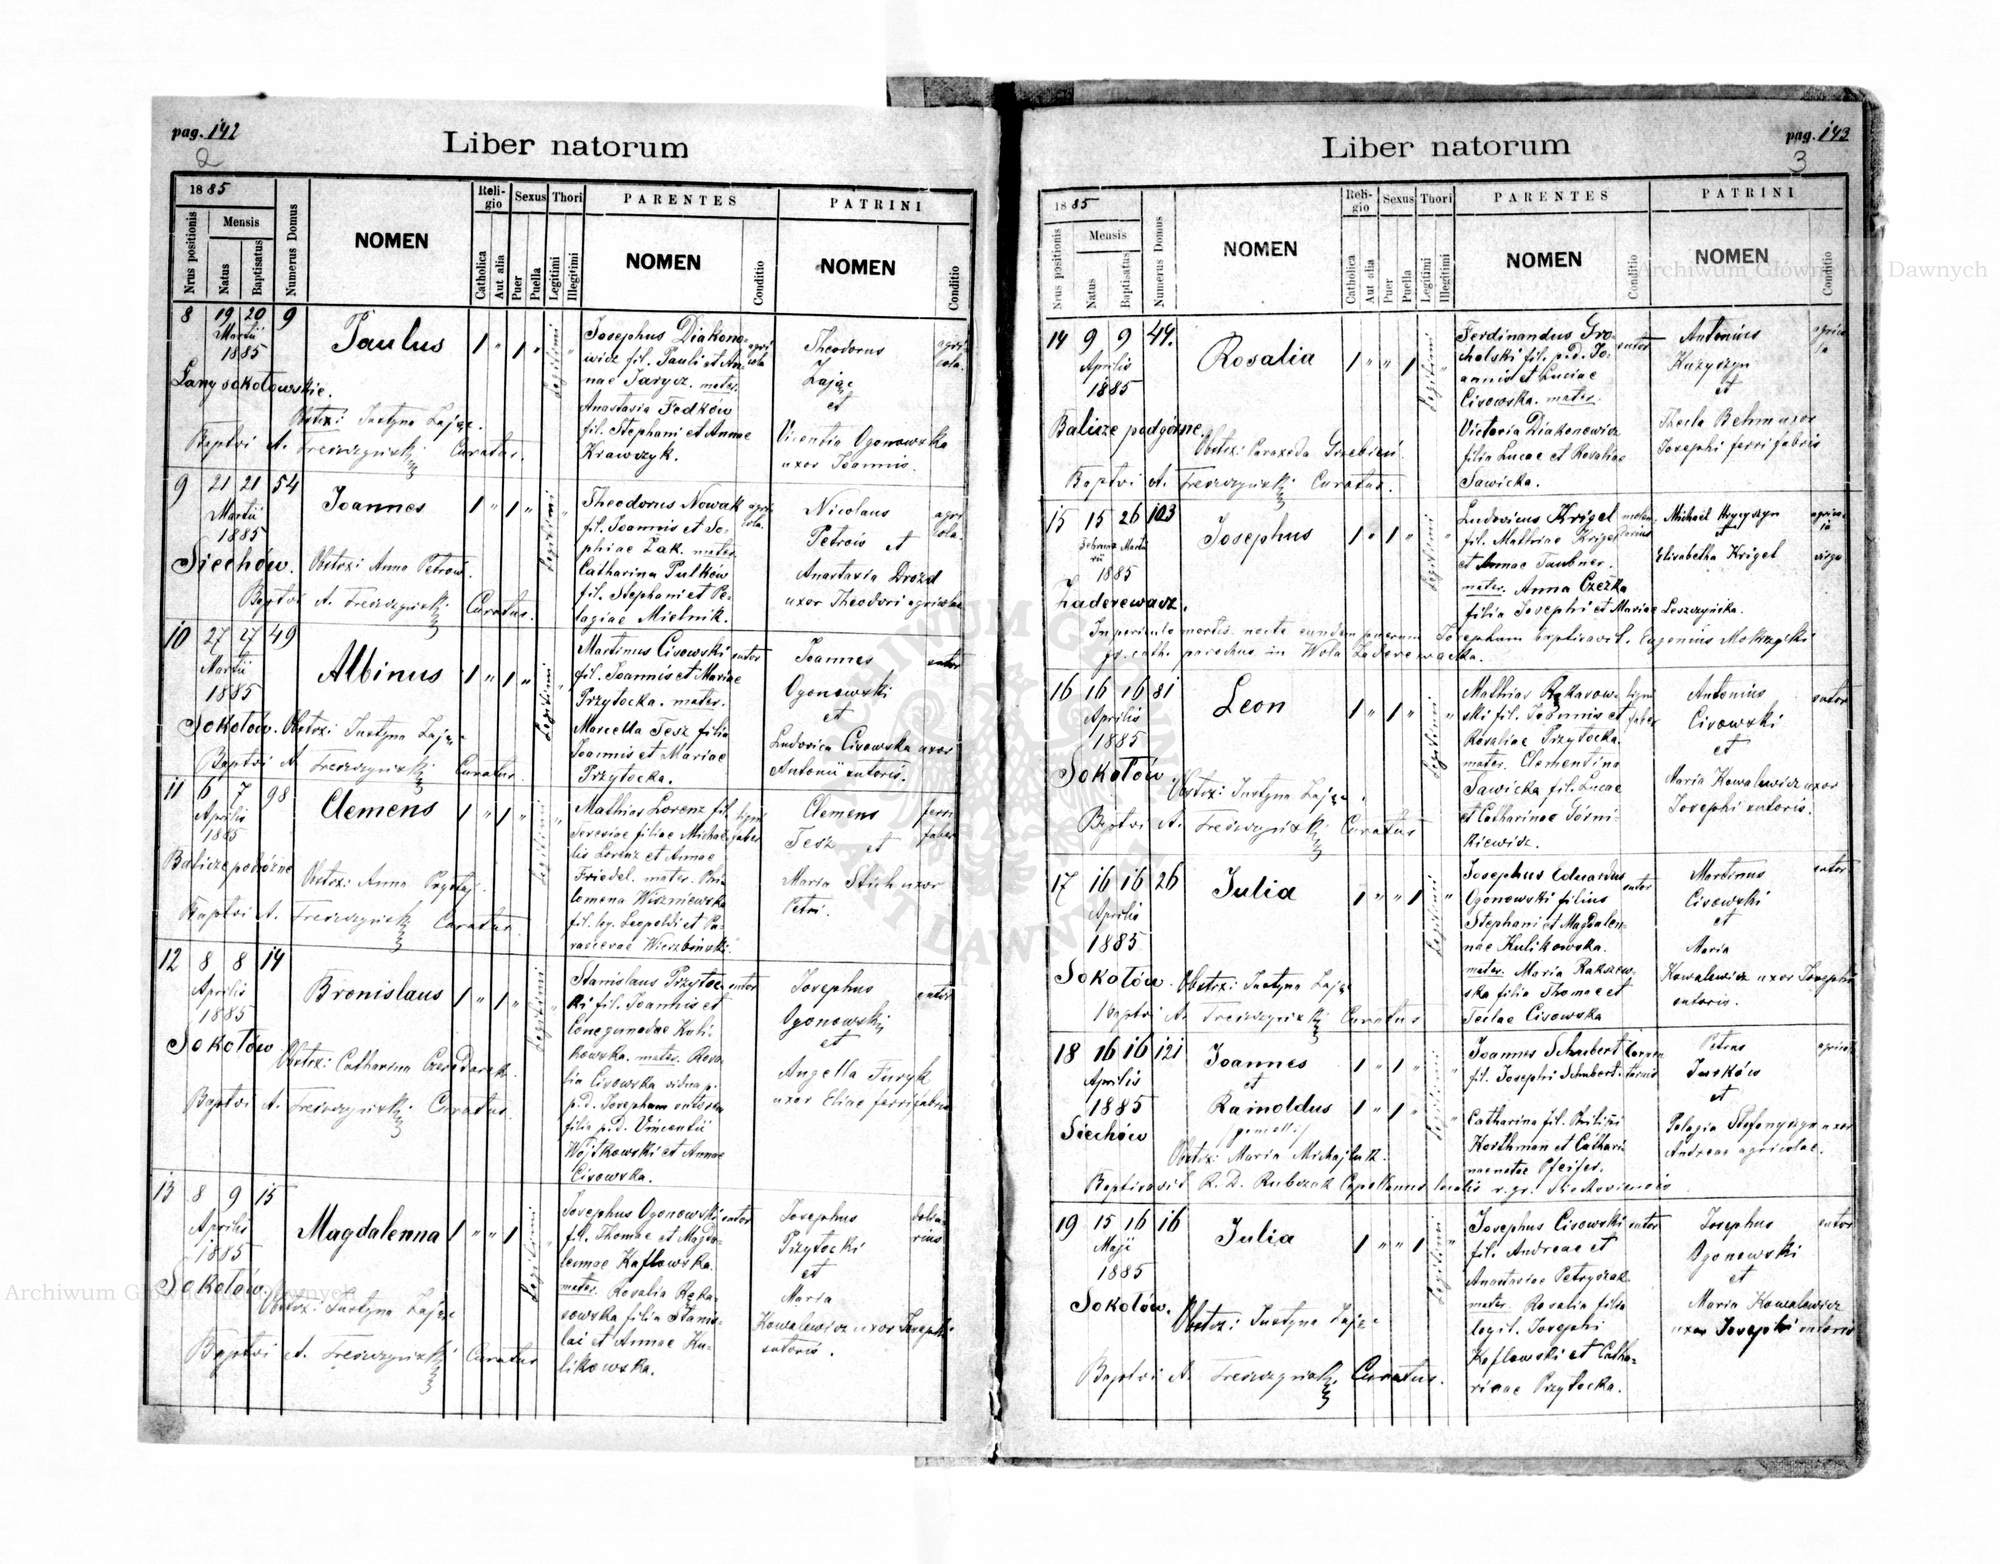 pag. 142
2
Liber natorum
1885
Nrus positionis
Mensis
Natus
Baptisatus
Numerus Domus
NOMEN
Religio
Catholica
Aut alia
Sexus
Puer
Puella
Thori
Legitimi
Illegitimi
PARENTES
NOMEN
Conditio
PATRINI
NOMEN
Conditio
8 19 20 9
Martii
1885
Łany sokołowskie.
Paulus
1 " 1 "
Legitimi
Josephus Diakono-
wicz fil. Pauli et An-
nae Jarycz. mater.
Anastasia Fedków
fil. Stephani et Annae
Krawczyk.
agri-
cola
Theodorus
Zając
et
Vicentia Ogonowska
uxor Joannis.
agri-
cola.
Obstrx: Justyna Zając.
Baptvi A. Treszczyński Curatus.
9 21 21 54
Martii
1885
Siechów.
Joannes
1 " 1 "
Legitimi
Theodorus Nowak
fil. Joannis et So-
phiae Żak. mater.
Catharina Pulków
fil. Stephani et Pe-
lagiae Mielnik.
agri-
cola.
Nicolaus
Petrów et
Anastasia Drozd
uxor Theodori agricolae
agri-
cola.
Obstrx: Anna Petrów.
Baptvi A. Treszczyński Curatus.
10 27 27 49
Martii
1885
Sokołów.
Albinus
1 " 1 "
Legitimi
Martinus Cisowski
fil. Joannis et Mariae
Przytocka. mater.
Marcella Tesz filia
Joannis et Mariae
Przytocka.
sutor
Joannes
Ogonowski
et
Ludovica Cisowska uxor
Antonii sutoris.
sutor
Obstrx: Justyna Zając
Baptvi A. Treszczyński Curatus.
11 6 7 98
Aprilis
1885
Balicze podróżne
Clemens
1 " 1 "
Legitimi
Mathias Lorenz fil.
Teresiae filiae Michae-
lis Lorenz et Annae
Friedel. mater. Phi-
lomena Wiszniewska
fil. leg. Leopoldi et Pa-
rascevae Wierzbinski.
ligni
faber
Clemens
Tesz et
Maria Stich uxor
Petri.
ferri
faber
Obstrx: Anna Prystaj.
Baptvi A. Treszczyński Curatus.
12 8 8 14
Aprilis
1885
Sokołów
Bronislaus
1 " 1 "
Legitimi
Stanislaus Przytoc-
ki fil. Joannis et
Conegundae Kuli-
kowska. mater. Rosa-
lia Cisowska vidua p.
p.d. Josephum sutorem
filia p.d. Vincentii
Wojtkowski et Annae
Cisowska.
sutor
Josephus
Ogonowski
et
Angella Furyk
uxor Eliae ferrifabri
sutor
Obstrx: Catharina Czeredarczuk.
Baptvi A. Treszczyński Curatus.
13 8 9 15
Aprilis
1885
Sokołów.
Magdalenna
1 " " 1
Legitimi
Josephus Ogonowski
fil. Thomae et Magda-
lennae Kaflowska.
mater. Rosalia Ręka-
sowska filia Stanis-
lai et Annae Ku-
likowska.
sutor
Josephus
Przytocki
et
Maria
Kowalewicz uxor Josephi
sutoris.
dolia-
rius
Obstrx: Justyna Zając
Baptvi A. Treszczyński Curatus
pag. 143
3
Liber natorum
1885
Nrus positionis
Mensis
Natus
Baptisatus
Numerus Domus
NOMEN
Religio
Catholica
Aut alia
Sexus
Puer
Puella
Thori
Legitimi
Illegitimi
PARENTES
NOMEN
Conditio
PATRINI
NOMEN
Conditio
14 9 9 44.
Aprilis
1885
Balicze podgórne.
Rosalia
1 " " 1
Legitimi
Ferdinandus Gro-
cholski fil. p.d. Jo-
annis et Luciae
Cisowska. mater.
Victoria Diakonewicz
filia Lucae et Rosaliae
Sawicka.
sutor
Antonius
Kuzyszyn
et
Thecla Behm uxor
Josephi ferrifabris
agrico-
la
Obstrx: Paraxeda Grzebień.
Baptvi A. Treszczyński Curatus.
15 15 26 103
Februarii Martii
1885
Zaderewacz.
Josephus
1 " 1 "
Legitimi
Ludovicus Krigel
fil. Mathiae Krigel
et Annae Taubner.
mater. Anna Czeżka
filia Josephi et Mariae Leszczyńska.
Michaël Hrycyszyn
et
Elisabetha Krigel
agrico-
la
virgo
In periculo mortis nocte eundem puerum Josephum baptisavit. Eugenius Mokrzycki
gr. cath. parochus in Wola Zaderewacka.
16 16 16 81
Aprilis
1885
Sokołów.
Leon
1 " 1 "
Legitimi
Mathias Rękasow-
ski fil. Joannis et
Rosaliae Przytocka.
mater. Clementina
Sawicka fil. Lucae
et Catharinae Górni-
kiewicz.
ligni
faber
Antonius
Cisowski
et
Maria Kowalewicz uxor
Josephi sutoris.
sutor
Obstrx: Justyna Zając.
Baptvi A. Treszczyński Curatus
17 16 16 26
Aprilis
1885
Sokołów.
Julia
1 " " 1
Legitimi
Josephus Eduardus
Ogonowski filius
Stephani et Magdalen-
nae Kulikowska.
mater. Maria Rakszew-
ska filia Thomae et
Teclae Cisowska
sutor
Martinus
Cisowski
et
Maria
Kowalewicz uxor Josephi
sutoris.
sutor
Obstrx: Justyna Zając
Baptvi A. Treszczyński Curatus
18 16 16 121
Aprilis
1885
Siechów
Joannes
et
Rainoldus
(gemelli)
1 " 1 "
1 " 1 "
Legitimi
Joannes Schubert
fil. Josephi Schubert.
Catharina fil. Philipi
Korthman et Cathari-
nae natae Pfeifer.
Petrus
Jusków
et
Pelagia Stefanyszyn uxor
Andreae agricolae.
agricola
Obstrx: Maria Michajluk.
Baptisavit R. D. Rubczak Capellanus localis r. gr. Siechoviensis
19 15 16 16
Maji
1885
Sokołów.
Julia
1 " " 1
Legitimi
Josephus Cisowski
fil. Andreae et
Anastasiae Petryszak
mater. Rosalia filia
legit. Josephi
Kaflowski et Catha-
rinae Przytocka.
sutor
Josephus
Ogonowski
et
Maria Kowalewicz
uxor Josephi sutoris
sutor
Obstrx: Justyna Zając
Baptvi A. Treszczyński Curatus.
Archiwum Główne Akt Dawnych
ARCHIWUM GŁÓWNE AKT DAWNYCH
Archiwum Główne Akt Dawnych